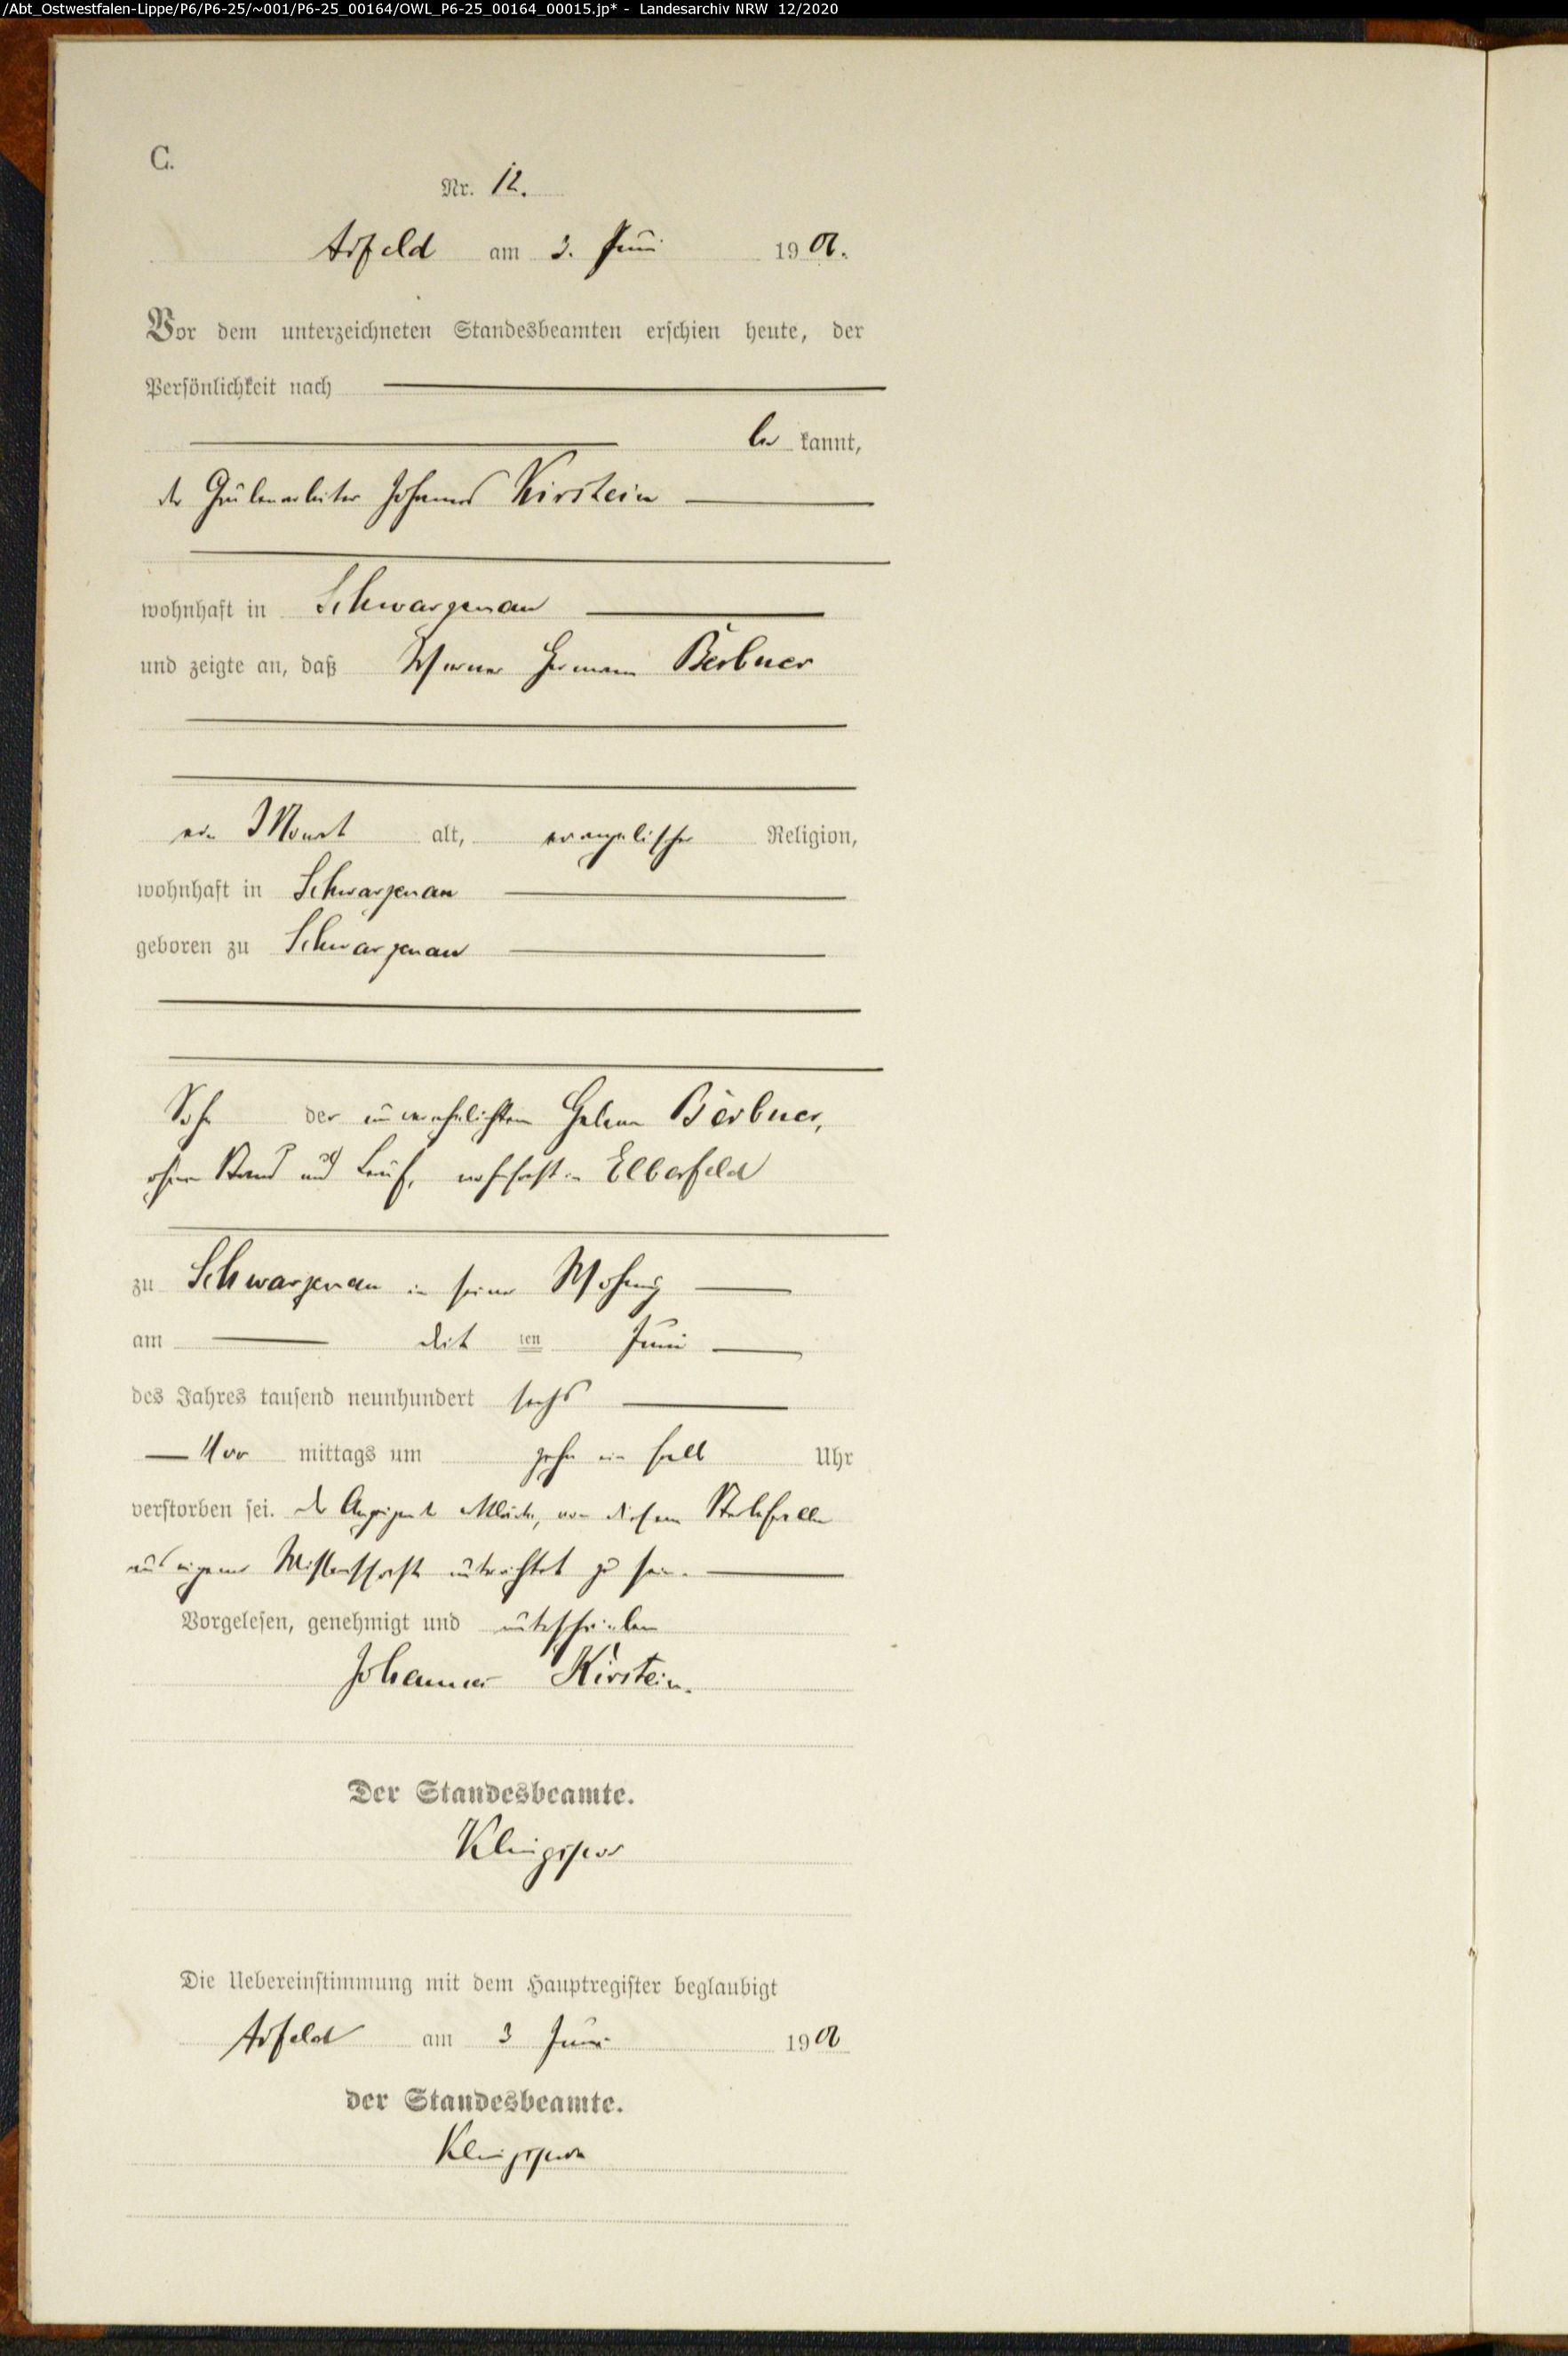 /Abt_Ostwestfalen-Lippe/P6/P6-25/~001/P6-25_00164/OWL_P6-25_00164_00015.jp* - Landesarchiv NRW 12/2020
C.
Nr. 12.
Arfeld am 3. Juni 1906.
Vor dem unterzeichneten Standesbeamten erschien heute, der
Persönlichkeit nach
be kannt,
der Grubenarbeiter Johannes Kirstein
wohnhaft in Schwarzenau
und zeigte an, daß Werner Hermann Berbuer
ein Monat alt, evangelischer Religion,
wohnhaft in Schwarzenau
geboren zu Schwarzenau
Sohn der unverehelichten Helene Berbuer,
ohne Stand und Beruf, wohnhaft in Elberfeld
zu Schwarzenau in seiner Wohnung
am dritten Juni
des Jahres tausend neunhundert sechs
Vor mittags um zehn ein halb Uhr
verstorben sei. Der Anzeigende erklärte, von diesem Sterbefalle
aus eigener Wissenschaft unterrichtet zu sein.
Vorgelesen, genehmigt und unterschrieben
Johannes Kirstein.
Der Standesbeamte.
Klingspor
Die Uebereinstimmung mit dem Hauptregister beglaubigt
Arfeld am 3 Juni 1906
der Standesbeamte.
Klingspor